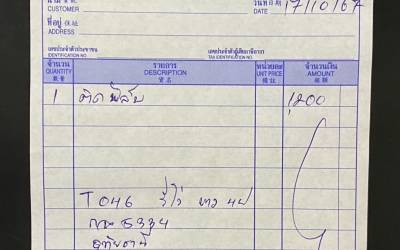 นาม 客户
CUSTOMER
วันที่ 日期
DATE 17/10/67
ที่อยู่
ADDRESS
เลขประจำตัวประชาชน
IDENTIFICATION NO.
เลขประจำตัวผู้เสียภาษีอากร
TAX IDENTIFICATION NO.
จำนวน รายการ หน่วยละ จำนวนเงิน
QUANTITY DESCRIPTION UNIT PRICE AMOUNT
數量 貨名 價錢 銀額
1 ติดฟิล์ม 1,200
T046
กพ 5334
อุทัยธานี